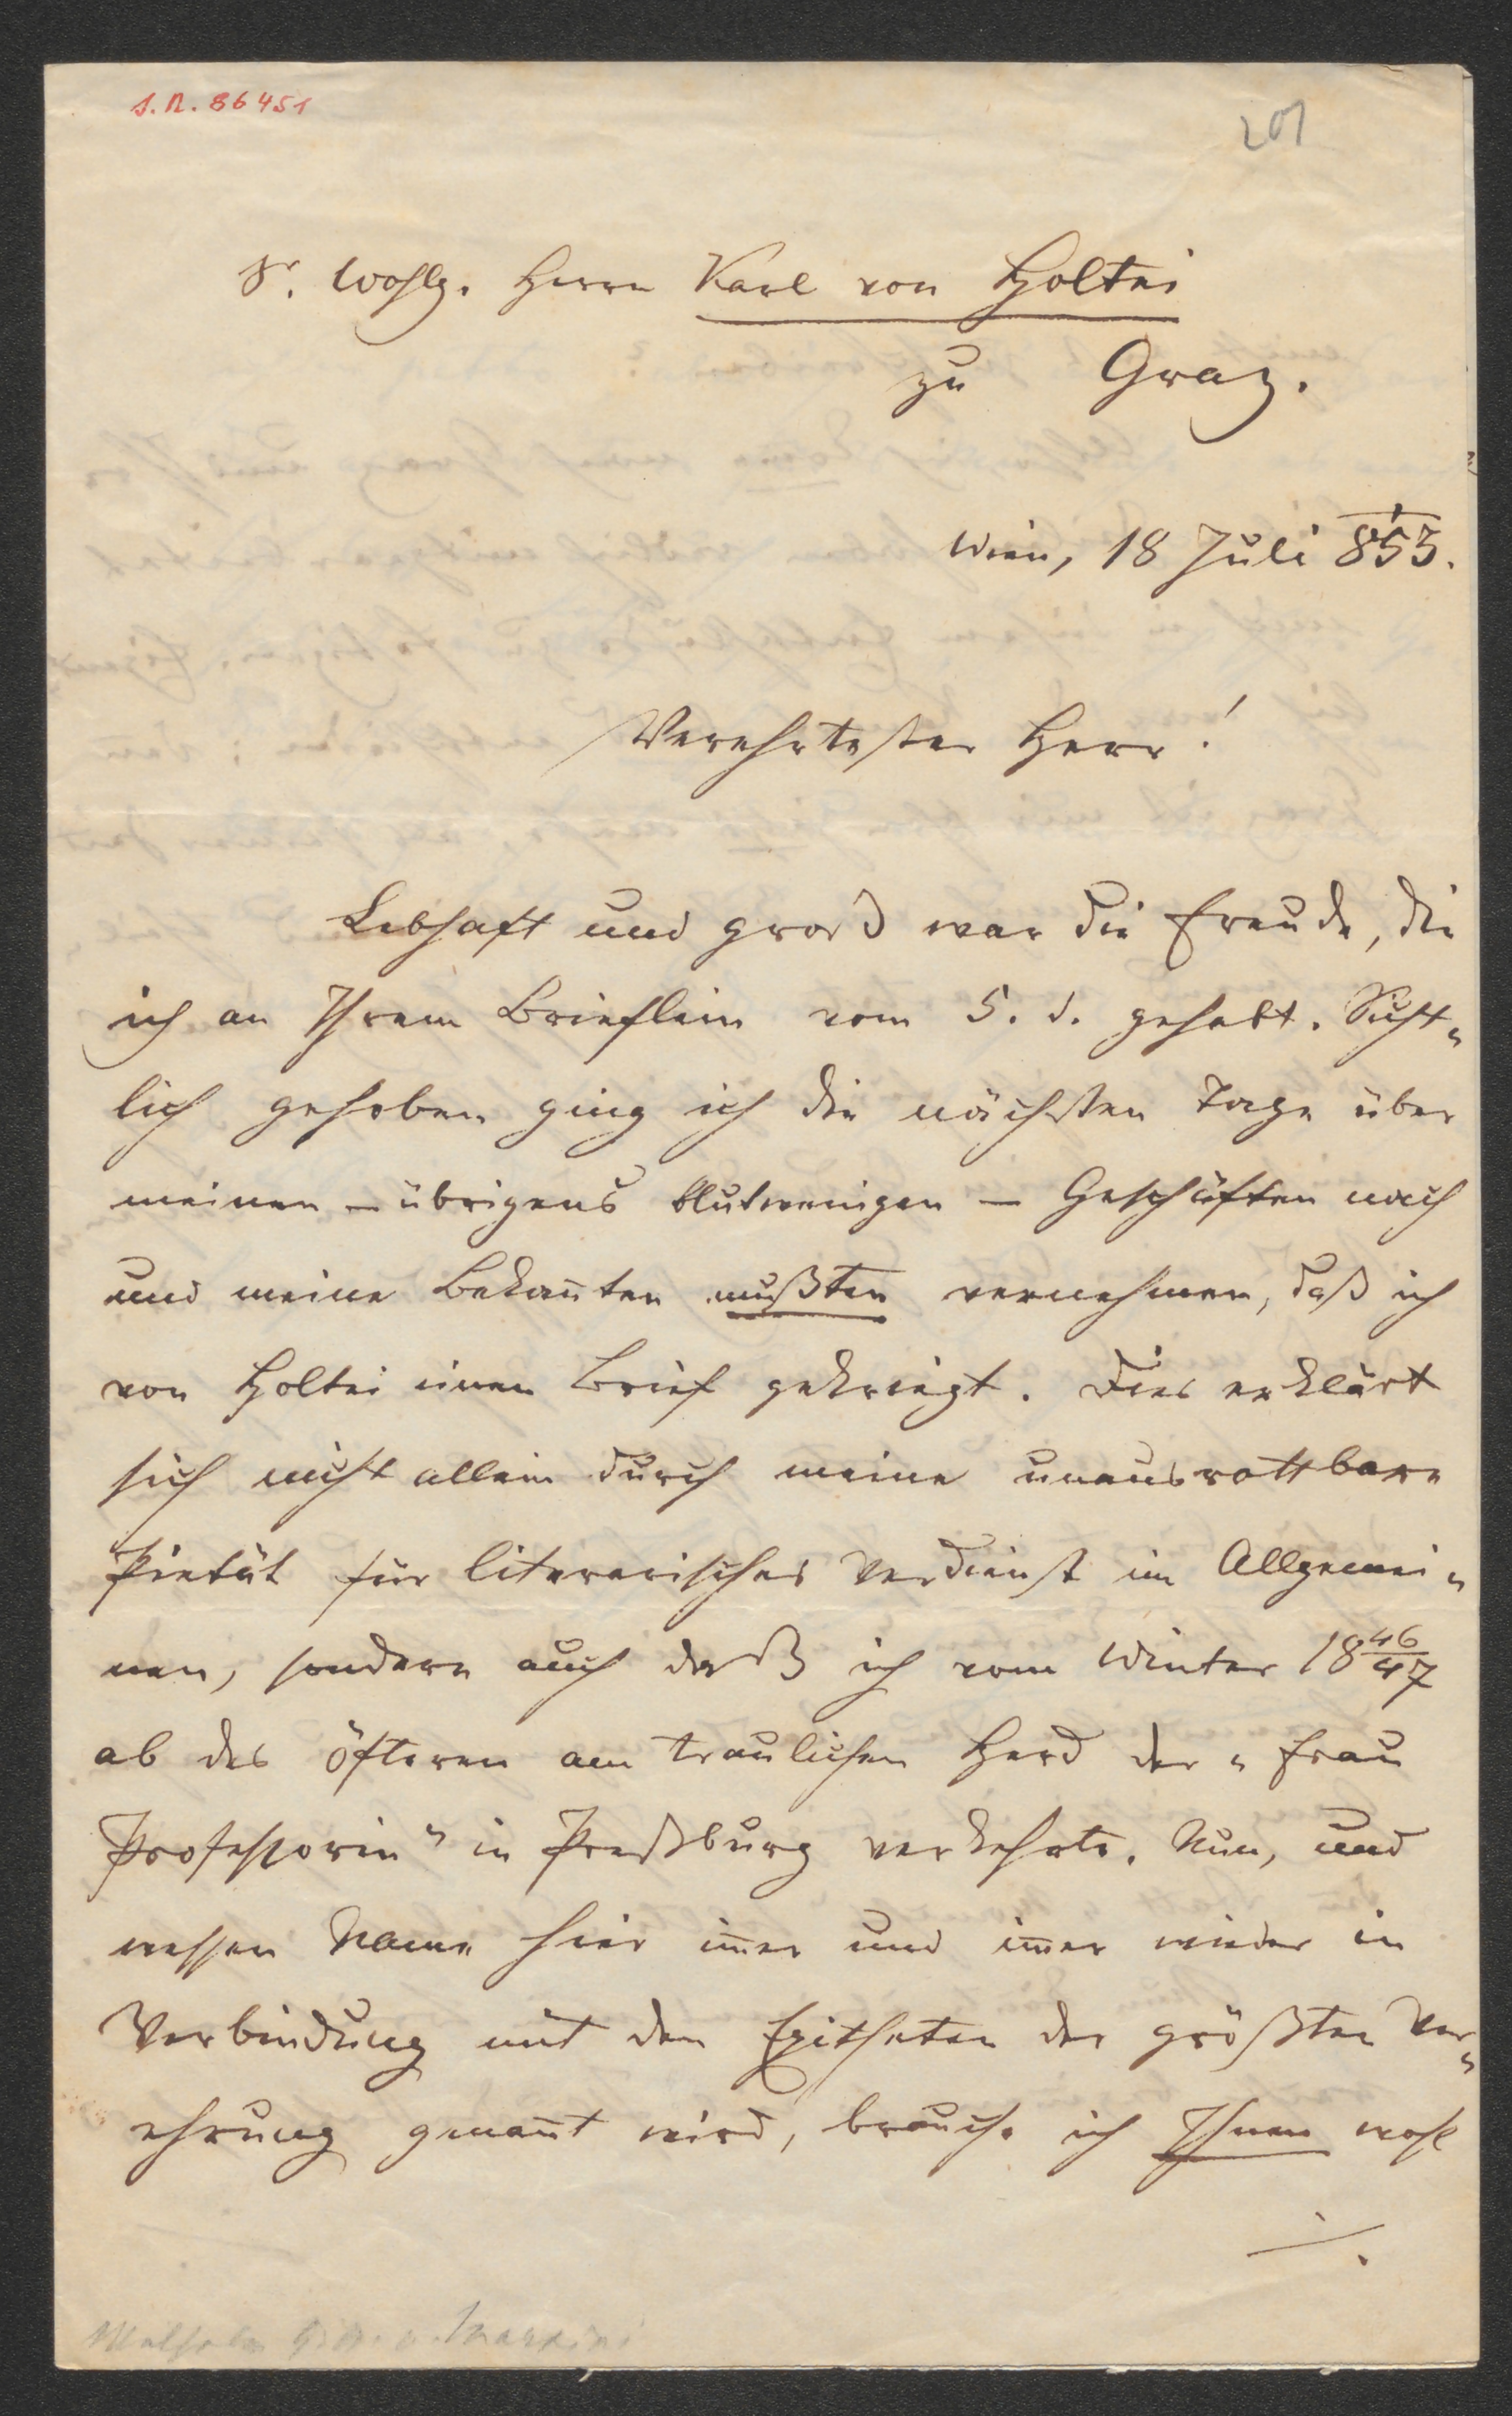 I. N. 86451
201
Sr. Wohlg. Herrn Karl von Holtei
zu Graz.
Wien, 18 Juli 853.
Verehrtester Herr!
Lebhaft und groß war die Freude, die
ich an Ihrem Brieflein vom 5. d. gehabt. Sicht„
lich gehoben ging ich die nächsten Tage über
meinen – übrigens blutwenigen – Geschäften nach
und meine Bekan̄ten mußten vernehmen, daß ich
von Holtei einen Brief gekriegt. Dies erklärt
sich nicht allein durch meine unausrottbare
Pietät für literarisches Verdienst im Allgemei„
nen, sondern auch daß ich vom Winter 1846/47
ab des öfteren am traulichen Herd der „Frau
Professorin“ in Preßburg verkehrte. Nun, und
wessen Name hier im̄er und im̄er wieder in
Verbindung mit den Epitheten der größten Ver„
ehrung genan̄t wird, brauche ich Ihnen wohl
./.